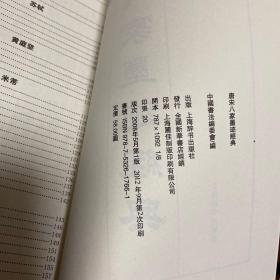 唐宋八家墨迹經典
中國書法編委會編
出版 上海辞书出版社
發行 全國新華書店經銷
印刷 上海麗佳制版印刷有限公司
開本 787×1092 1/8
印張 20
版次 2008年5月第1版 2012年9月第2次印刷
書號 ISBN 978-7-5326-1766-1
定價 58.00圓
苏轼
黄庭堅
米芾